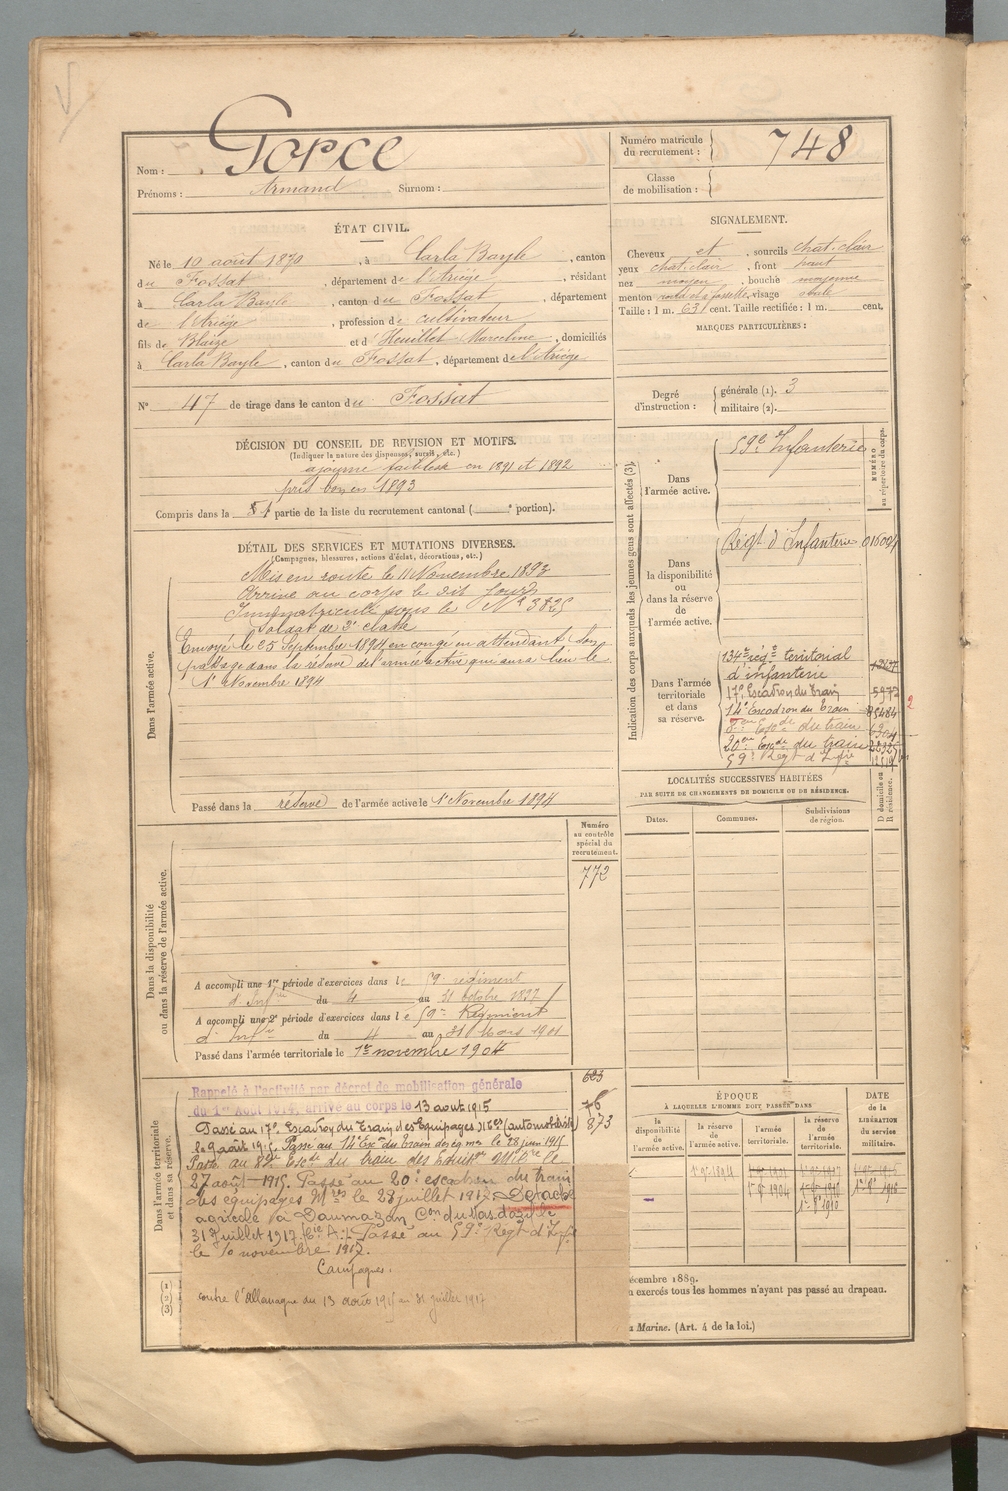 Nom : Gorce
Prénoms : Armand Surnom :
Numéro matricule du recrutement : 748
Classe de mobilisation :
ÉTAT CIVIL.
Né le 10 août 1870, à Carla Bayle, canton
du Fossat, département de l'Ariège, résidant
à Carla Bayle, canton du Fossat, département
de l'Ariège, profession de cultivateur
fils de Blaize et d'Heuillet Marceline, domiciliés
à Carla Bayle, canton du Fossat, département de l'Ariège
N° 47 de tirage dans le canton du Fossat
SIGNALEMENT.
Cheveux et, sourcils chat. clair
yeux chat. clair, front haut
nez moyen, bouche moyenne
menton rond et à fossette, visage ovale
Taille : 1 m. 631 cent. Taille rectifiée : 1 m. cent.
MARQUES PARTICULIÈRES :
Degré d'instruction : générale (1). 3
militaire (2).
DÉCISION DU CONSEIL DE REVISION ET MOTIFS.
(Indiquer la nature des dispenses, sursis, etc.)
ajourné faiblesse en 1891 et 1892
pris bon en 1893
Compris dans la partie de la liste du recrutement cantonal ( e portion).
DÉTAIL DES SERVICES ET MUTATIONS DIVERSES.
(Campagnes, blessures, actions d'éclat, décorations, etc.)
Dans l'armée active.
Mis en route le 11 Novembre 1893
Arrivé au corps le dit jour
Immatriculé sous le N° 3825
Soldat de 2e classe
Envoyé le 25 Septembre 1894 en congé en attendant son
passage dans la réserve de l'armée active qui aura lieu le
1er Novembre 1894
Passé dans la réserve de l'armée active le 1er Novembre 1894
Indication des corps auxquels les jeunes gens sont affectés (3).
NUMÉRO au répertoire du corps.
Dans l'armée active.
59e Infanterie
Dans la disponibilité ou dans la réserve de l'armée active.
Régt d'Infanterie
Dans l'armée territoriale et dans sa réserve.
134e rég.t territorial
d'infanterie
17e Escadron du Train 5972
14e Escadron du Train
8eme Escd. du train
20eme Escd. du train
59e Régt d'Infie
LOCALITÉS SUCCESSIVES HABITÉES
PAR SUITE DE CHANGEMENTS DE DOMICILE OU DE RÉSIDENCE.
Dates. Communes. Subdivisions de région. D domicile ou R résidence.
Dans la disponibilité ou dans la réserve de l'armée active.
Numéro au contrôle spécial du recrutement.
772
A accompli une 1re période d'exercices dans le 59e régiment
d'Infrie du 4 au 31 octobre 1897
A accompli une 2e période d'exercices dans le 59e Régiment
d'Infrie du 4 au 31 Mars 1901
Passé dans l'armée territoriale le 1er novembre 1904
Dans l'armée territoriale et dans sa réserve.
Rappelé à l'activité par décret de mobilisation générale
du 1er Août 1914, arrivé au corps le 13 août 1915
Passé au 17e Escadron du Train des Equipages Mres (automobiliste)
le 9 août 1915. Passé au 14e Eson du train des eq. mes le 28 juin 1915
Passé au 8eme Escd. du train des Equip. Milre le
27 août 1915. Passé au 20e escadron du train
des équipages Mres le 28 juillet 1917. Détaché
agricole à Daumazan Con du Mas d'azil le
31 Juillet 1917. Passé au 59e Régt d'Infie
le 10 novembre 1917.
Campagnes.
contre l'Allemagne du 13 août 1915 au 31 juillet 1917
873
ÉPOQUE
À LAQUELLE L'HOMME DOIT PASSER DANS
la disponibilité de l'armée active. la réserve de l'armée active. l'armée territoriale. la réserve de l'armée territoriale.
DATE de la LIBÉRATION du service militaire.
écembre 1889.
exercés tous les hommes n'ayant pas passé au drapeau.
Marine. (Art. 4 de la loi.)